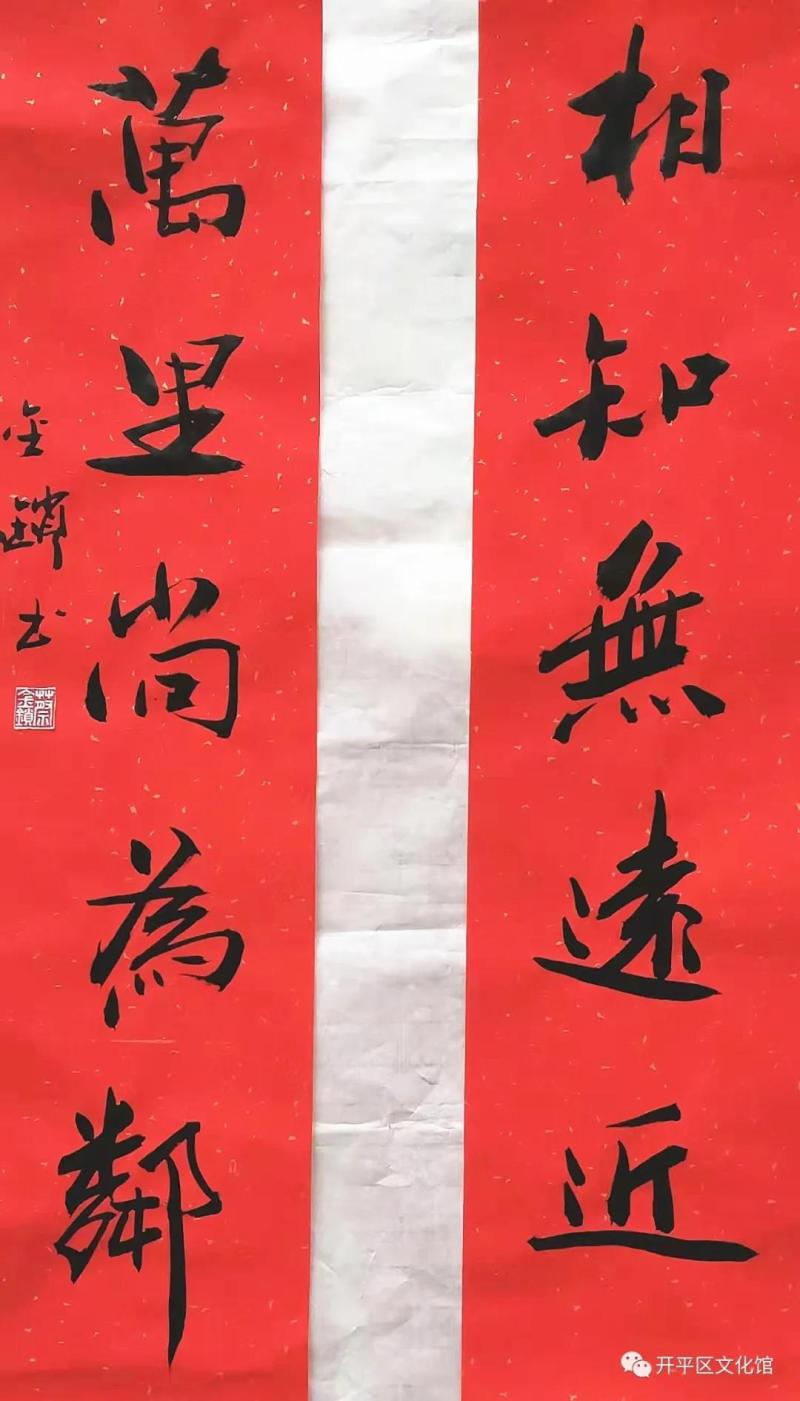 相知無遠近
萬里尚為鄰
金鎖书
蔡金鎖
开平区文化馆